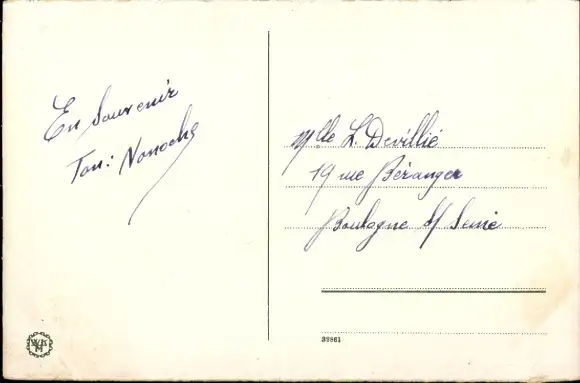 En Souvenir
Ton: Nonoche
Mlle L. Devillié
19 rue Béranger
Boulogne s/ Seine
39861